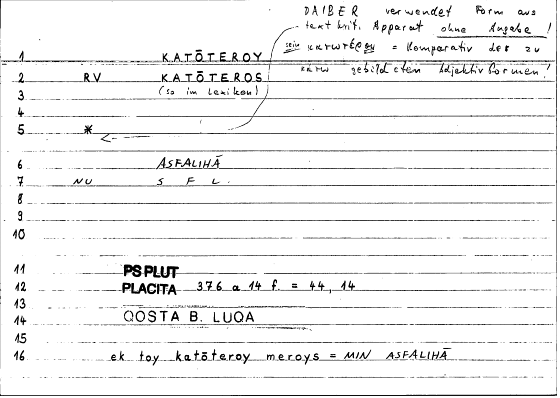 DAIBER verwendet Form aus
textkrit. Apparat ohne Angabe!
sein κατωτέρου = Komparativ des zu
κάτω gebildeten Adjektivformen!
1 KATŌTEROY
2 RV KATŌTEROS
3 (so im Lexikon!)
4
5 *
6 ASFALIHĀ
7 NU S F L.
8
9
10
11 PS PLUT
12 PLACITA 376 a 14 f. = 44, 14
13
14 QOSTA B. LUQA
15
16 ek toy katōteroy meroys = MIN ASFALIHĀ